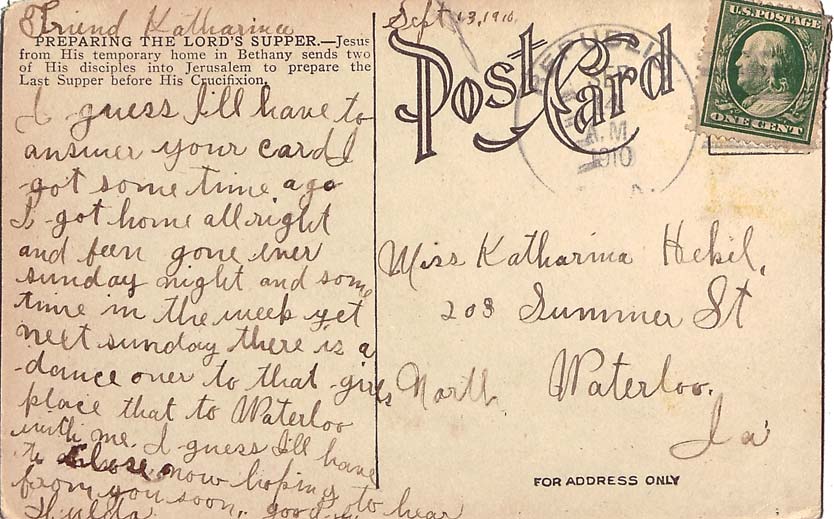 Friend Katharina
PREPARING THE LORD'S SUPPER.—Jesus
from His temporary home in Bethany sends two
of His disciples into Jerusalem to prepare the
Last Supper before His Crucifixion.
I guess I'll have to
answer your card I
got some time ago
I got home allright
and been gone ever
sunday night and some
time in the week yet
next sunday there is a
dance over to that girls
place that to Waterloo
with me. I guess I'll have
to close now hoping to hear
from you soon, good
Hulda
Sept 13, 1910.
Post Card
SEP
A.M.
1910
U.S. POSTAGE
ONE CENT
Miss Katharina Hekil,
208 Summer St
North Waterloo.
Ia
FOR ADDRESS ONLY